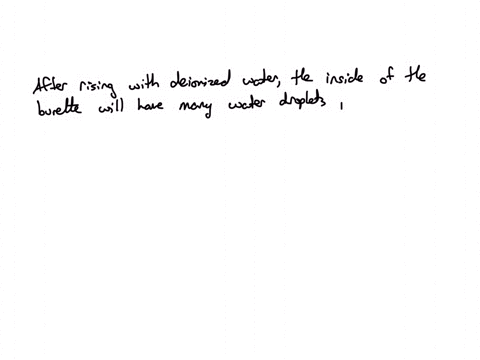 After rising with deionized water, the inside of the
burette will have many water droplets,